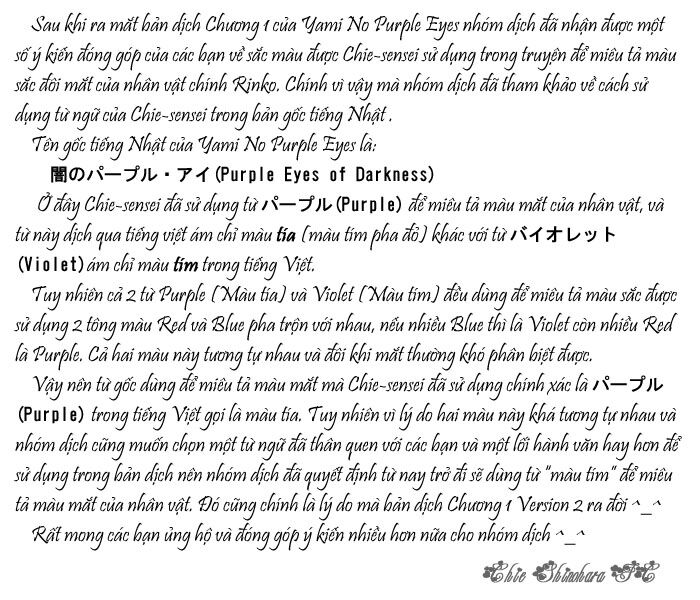 Sau khi ra mắt bản dịch Chương 1 của Yami No Purple Eyes nhóm dịch đã nhận được một
số ý kiến đóng góp của các bạn về sắc màu được Chie-sensei sử dụng trong truyện để miêu tả màu
sắc đôi mắt của nhân vật chính Rinko. Chính vì vậy mà nhóm dịch đã tham khảo về cách sử
dụng từ ngữ của Chie-sensei trong bản gốc tiếng Nhật .
Tên gốc tiếng Nhật của Yami No Purple Eyes là:
闇のパープル・アイ(Purple Eyes of Darkness)
Ở đây Chie-sensei đã sử dụng từ パープル(Purple) để miêu tả màu mắt của nhân vật, và
từ này dịch qua tiếng việt ám chỉ màu tía (màu tím pha đỏ) khác với từ バイオレット
(Violet)ám chỉ màu tím trong tiếng Việt.
Tuy nhiên cả 2 từ Purple (Màu tía) và Violet (Màu tím) đều dùng để miêu tả màu sắc được
sử dụng 2 tông màu Red và Blue pha trộn với nhau, nếu nhiều Blue thì là Violet còn nhiều Red
là Purple. Cả hai màu này tương tự nhau và đôi khi mắt thường khó phân biệt được.
Vậy nên từ gốc dùng để miêu tả màu mắt mà Chie-sensei đã sử dụng chính xác là パープル
(Purple) trong tiếng Việt gọi là màu tía. Tuy nhiên vì lý do hai màu này khá tương tự nhau và
nhóm dịch cũng muốn chọn một từ ngữ đã thân quen với các bạn và một lối hành văn hay hơn để
sử dụng trong bản dịch nên nhóm dịch đã quyết định từ nay trở đi sẽ dùng từ "màu tím" để miêu
tả màu mắt của nhân vật. Đó cũng chính là lý do mà bản dịch Chương 1 Version 2 ra đời ^_^
Rất mong các bạn ủng hộ và đóng góp ý kiến nhiều hơn nữa cho nhóm dịch ^_^
Chie Shinohara FC